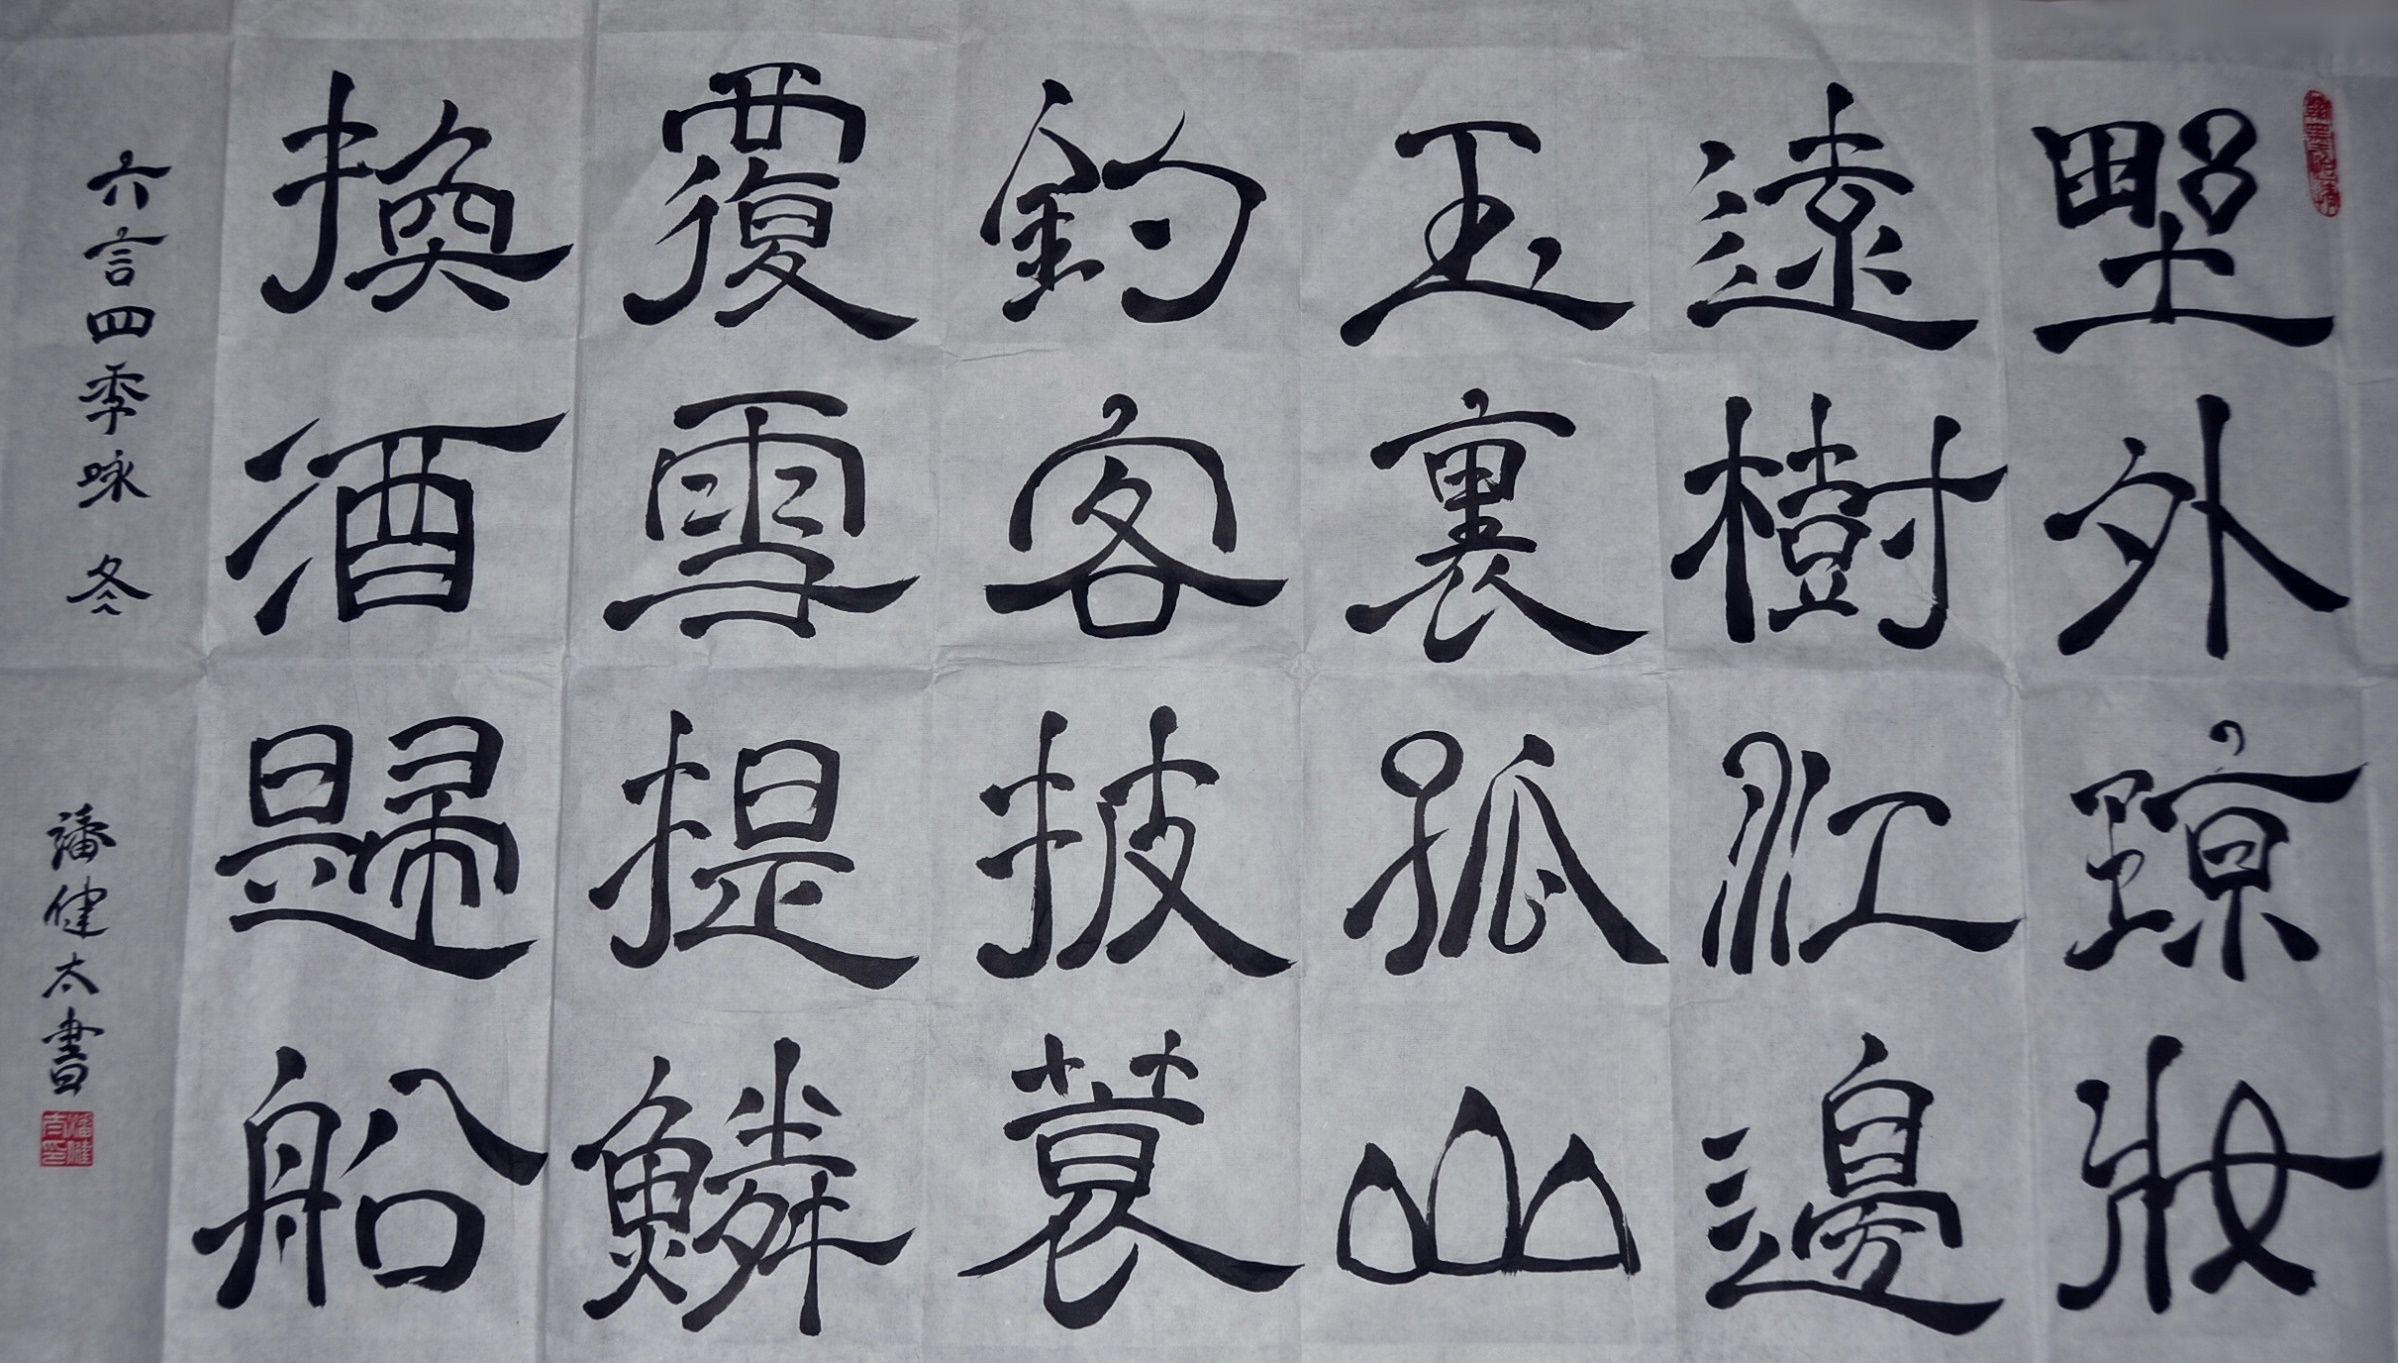 野外琼妝
遠樹江邊
玉裏孤山
釣客披蓑
覆雪提鱗
換酒歸船
六言四季咏 冬
潘健太書
潘健太印